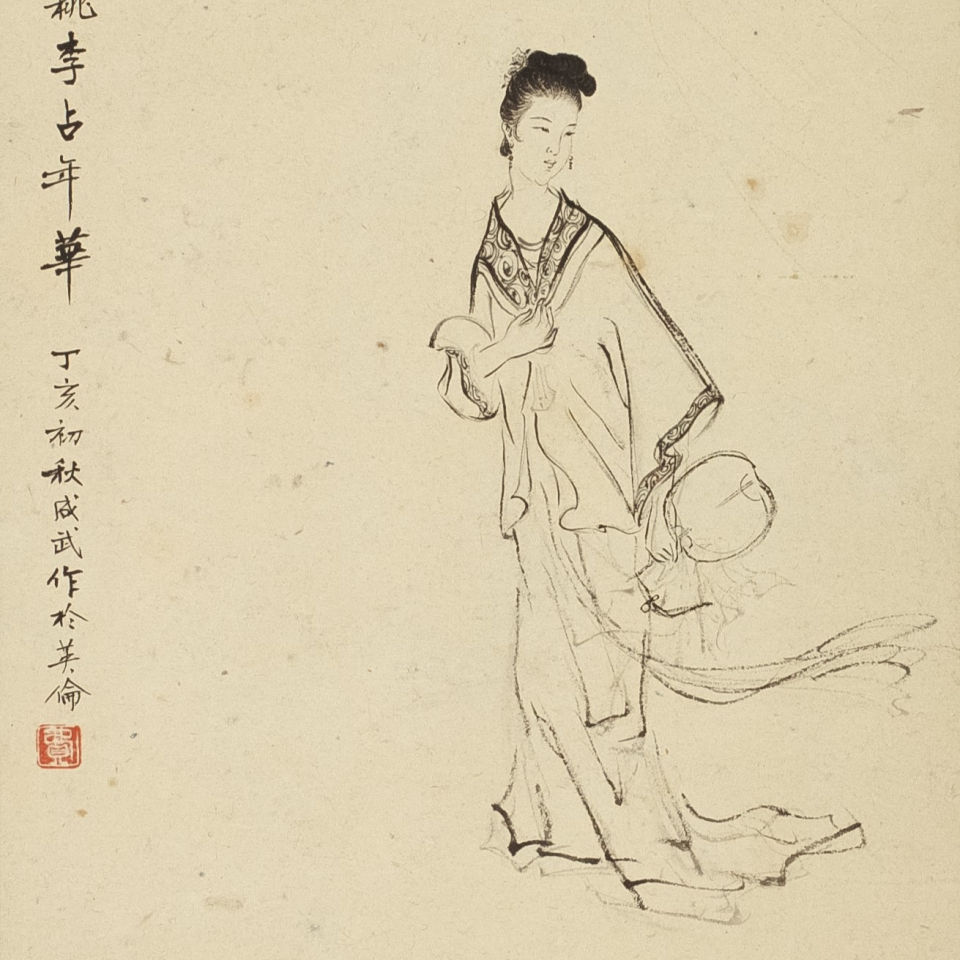 桃李占年華
丁亥初秋成武作於英倫
費